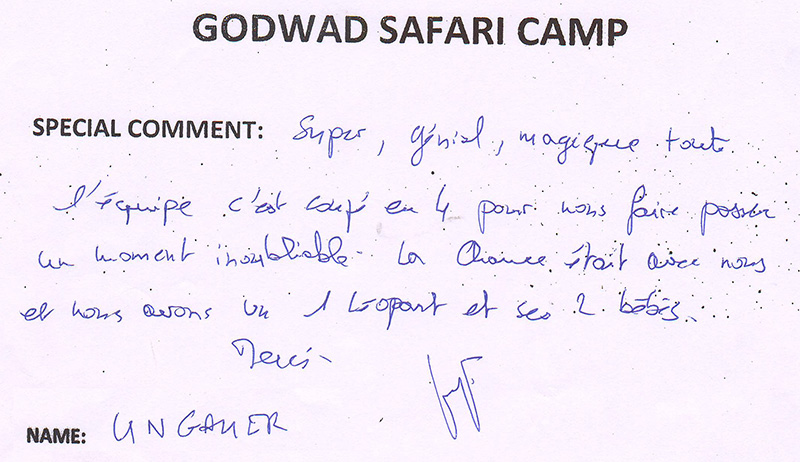 GODWAD SAFARI CAMP
SPECIAL COMMENT: Super, génial, magique toute
l'équipe c'est coupé en 4 pour nous faire passer
un moment inoubliable. La Chance était avec nous
et nous avons vu 1 Léopart et ses 2 bébés.
Merci
NAME: UNGAUER